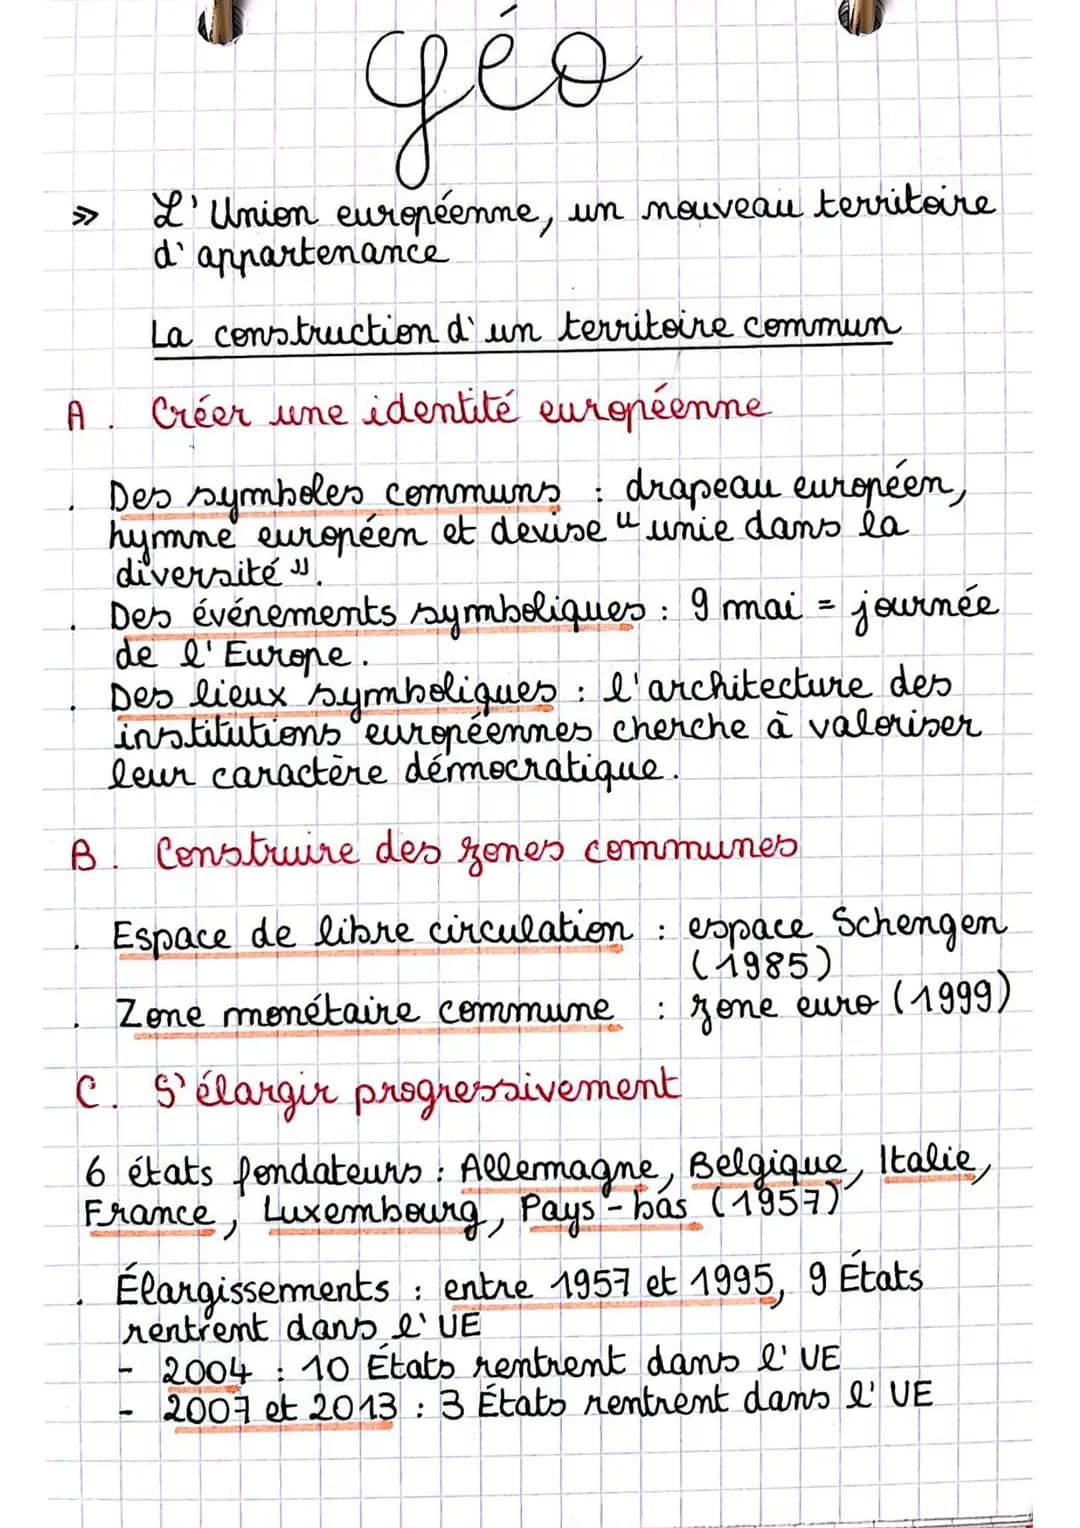 géo
» L'Union européenne, un nouveau territoire
d'appartenance
La construction d'un territoire commun
A. Créer une identité européenne
. Des symboles communs : drapeau européen,
hymne européen et devise " unie dans la
diversité ".
. Des événements symboliques : 9 mai = journée
de l'Europe.
. Des lieux symboliques : l'architecture des
institutions européennes cherche à valoriser
leur caractère démocratique.
B. Construire des zones communes
. Espace de libre circulation : espace Schengen
(1985)
. Zone monétaire commune : zone euro (1999)
C. S'élargir progressivement
6 états fondateurs : Allemagne, Belgique, Italie,
France, Luxembourg, Pays-bas (1957)
. Élargissements : entre 1957 et 1995, 9 États
rentrent dans l'UE
- 2004 : 10 États rentrent dans l'UE
- 2007 et 2013 : 3 États rentrent dans l'UE